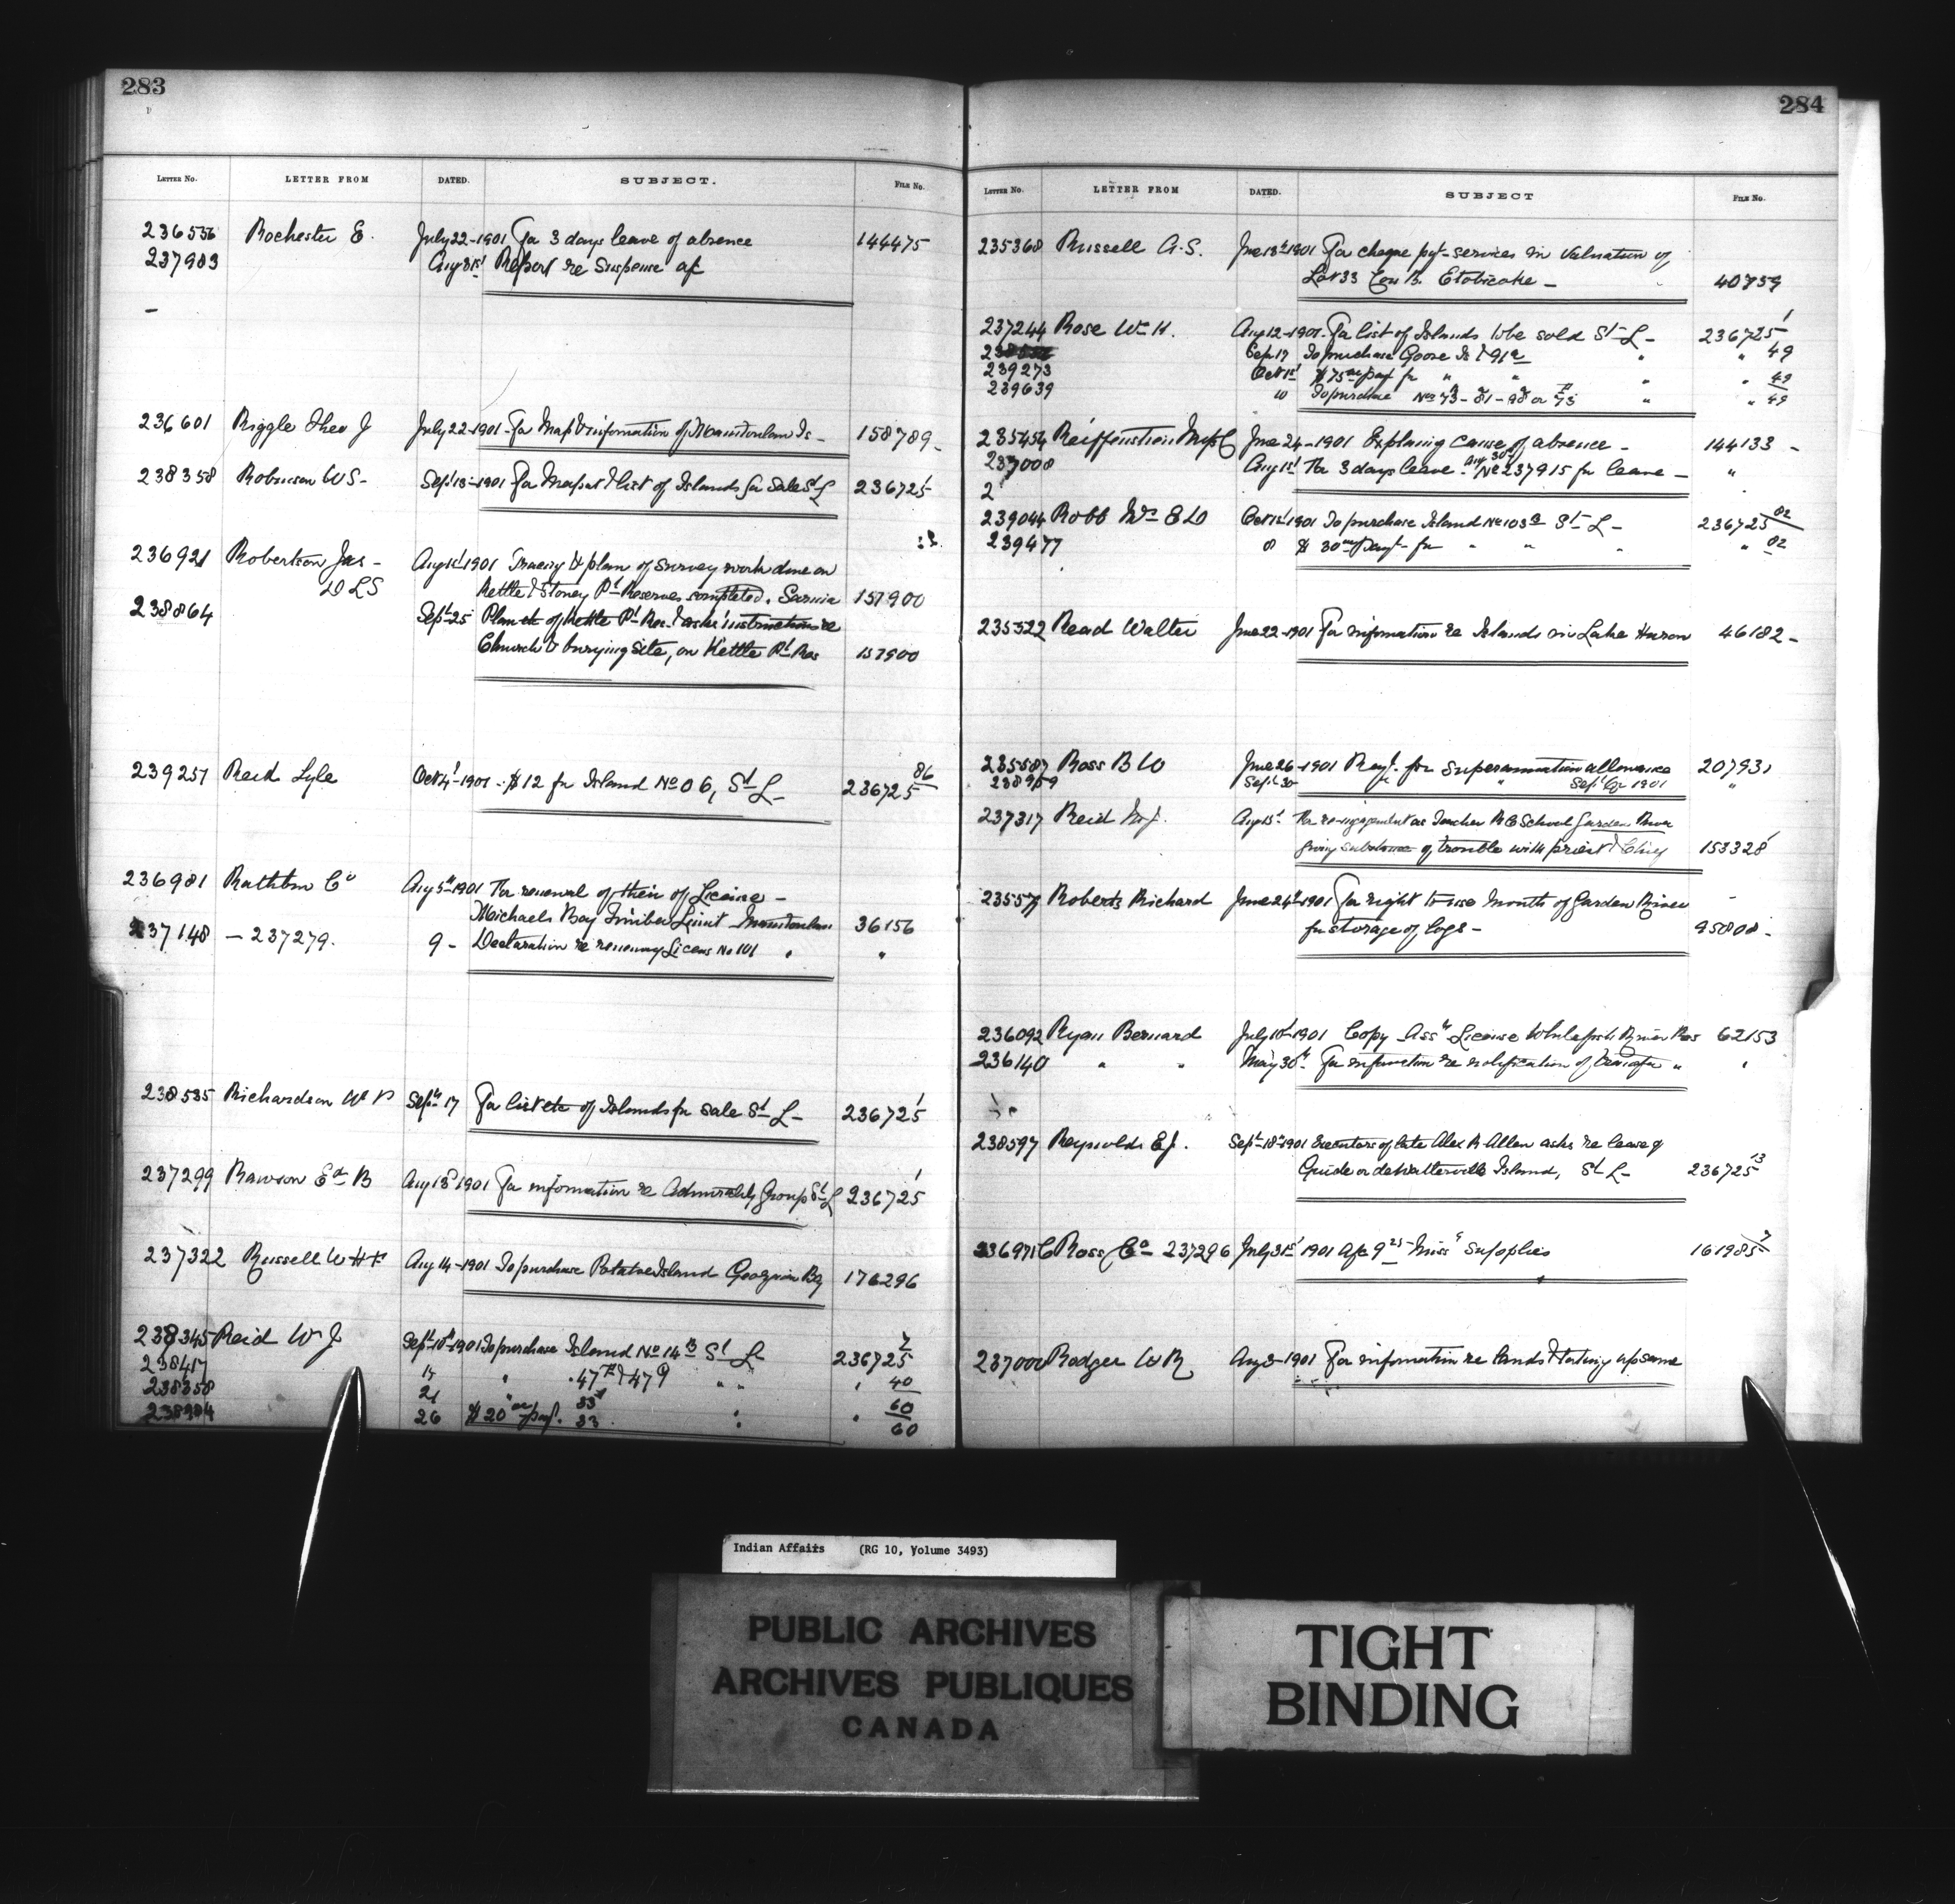 283
LETTER No. LETTER FROM DATED. SUBJECT. FILE No.
236556 Rochester E. July 22-1901 For 3 days leave of absence 144475
237983 Aug 31st Report re Suspense a/c
236601 Riggle Theo J July 22-1901 - For Map & information of Manitoulin Is - 158789
238358 Robinson W S - Sept 13-1901 For Map & list of Islands for Sale St L 236725
236921 Robertson Jas - Aug 1st 1901 Tracing & plan of survey work done on
D L S Kettle & Stoney Pt Reserves completed. Sarnia 157900
238864 Sept 25 Plan etc of Kettle Pt Res. & asks instructions re
Church & burying site, on Kettle Pt Res 157900
239257 Reid Lyle Oct 4-1901 - $12 for Island No 06, St L - 236725 86
236981 Rathbun Co Aug 5th 1901 For renewal of their License -
Michaels Bay Timber Limit Manitoulin 36156
237148 - 237279. 9 - Declaration re renewing License No 101 " "
238535 Richardson W P Sept 17 For list etc of Islands for sale St L - 236725 1
237299 Rawson Ed B Aug 13 1901 For information re Admiralty Group St L 236725 1
237322 Russell W H F Aug 14-1901 To purchase Potatoe Island Georgian Bay 176296
238345 Reid W J Sept 10th 1901 To purchase Island No 14 B St L 236725 2
17 " 47 & 47 " " " 40
21 " 33 60
26 $20 pay't. 33 " " 60
284
LETTER No. LETTER FROM DATED. SUBJECT FILE No.
235368 Russell A. S. June 13th 1901 For cheque pay't - services in valuation of
Lot 33 Con B. Etobicoke - 40759
237244 Rose Wm H. Aug 12-1901. For list of Islands to be sold St L - 236725 1
Sept 17 To purchase Goose Is & 91a " " 49
239273 Oct 1st $75 pay't for " " " " 49
239639 10 To purchase Nos 73 - 81 - 98 or 73 " " 49
235454 June 24-1901 Explaining cause of absence - 144133 -
237008 Aug 1st For 3 days leave - Aug 30th No 237915 for leave - "
2
239044 Robb Oct 1st 1901 To purchase Island No 103 St L - 236725 82
239477 8 $30 pay't - for " " " " 82
235322 Read Walter June 22-1901 For information re Islands in Lake Huron 46182 -
235587 Ross B W June 26-1901 Pay't. for Superannuation allowance 207931
Sept 30 " " Sept Qr 1901 "
237317 Reid M J. Aug 15th For re-engagement as Teacher R C School Garden River
giving substance of trouble with priest & Chief 153328
23557 Roberts Richard June 24th 1901 For right to use mouth of Garden River
for storage of logs - 95808 -
236092 Ryan Bernard July 10th 1901 Copy Ass't License Whitefish River Res 62153
236140 " " May 30th For information re notification of transfer " "
238597 Reynolds E J. Sept 18th 1901 Executors of late Alex R Allen asks re lease of
Guide or deWatterville Island, St L - 236725 13
Ross Co - 237296 July 31st 1901 a/c 9 25 Miss Supplies 161985 7
237000 Rodger W R Aug 3-1901 For information re lands & taking up same
Indian Affairs (RG 10, Volume 3493)
PUBLIC ARCHIVES
ARCHIVES PUBLIQUES
CANADA
TIGHT
BINDING